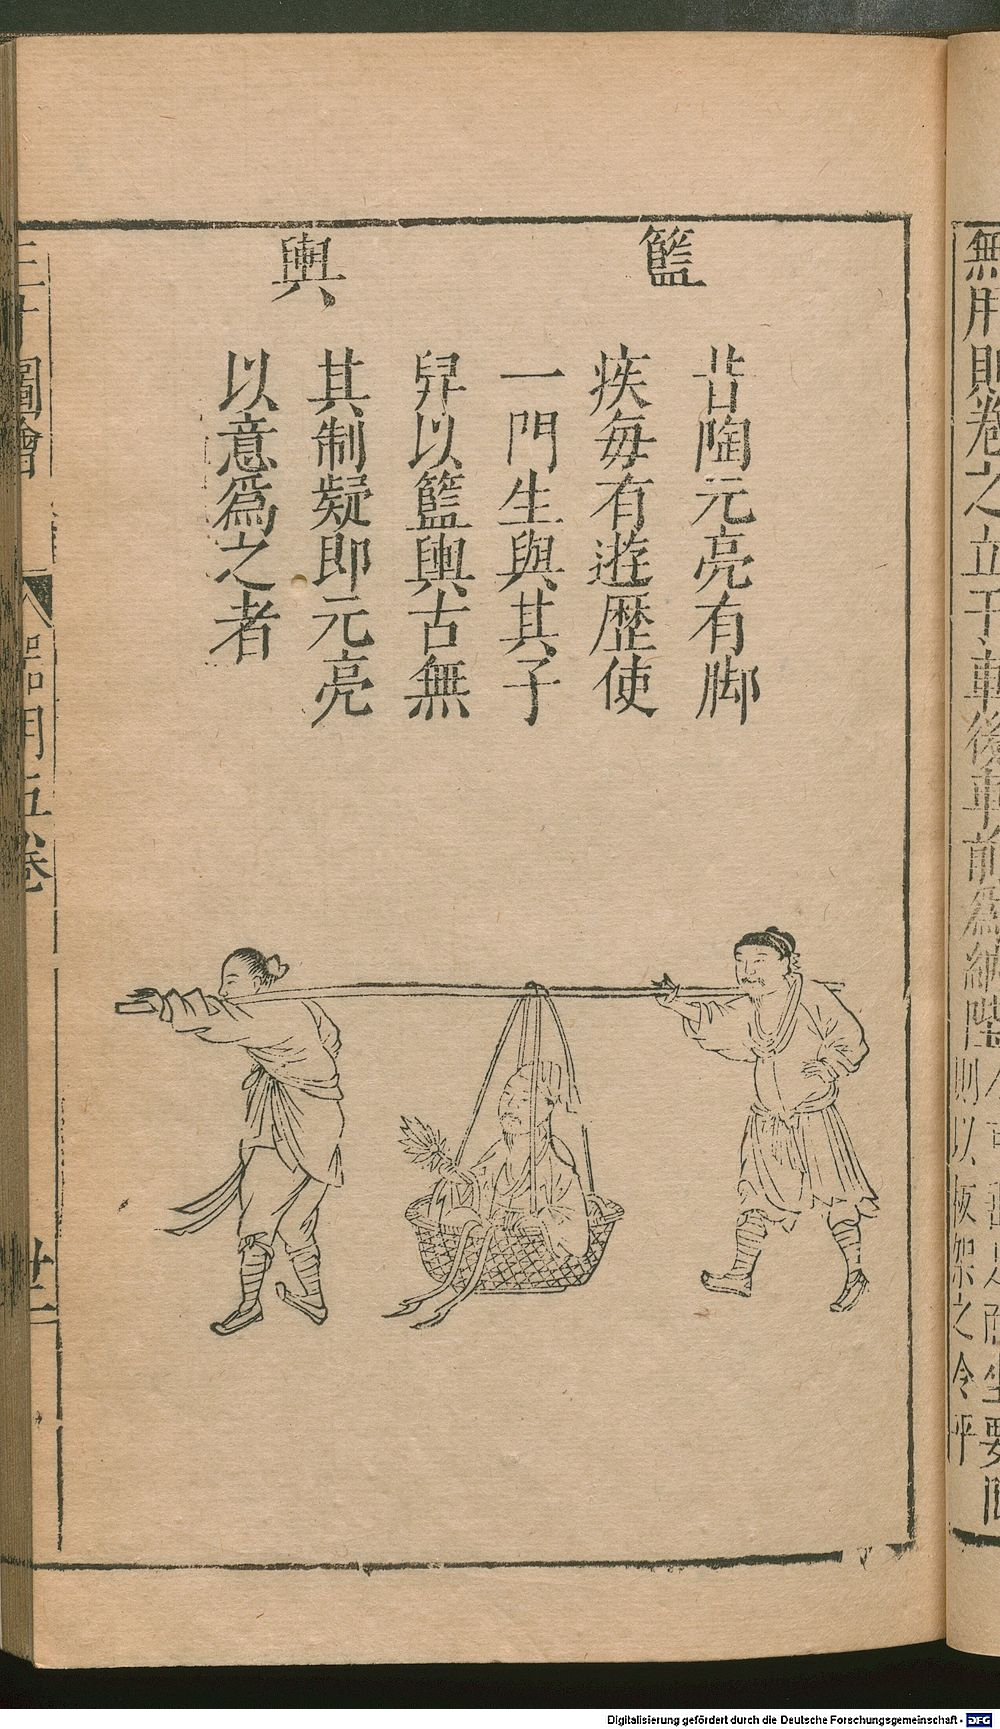 無用則卷之立于軾後車前爲納陛
則以板架之令平
籃輿
昔陶元亮有脚
疾每有遊歷使
一門生與其子
舁以籃輿古無
其制疑即元亮
以意爲之者
三才圖會
器用五卷
廿二
Digitalisierung gefördert durch die Deutsche Forschungsgemeinschaft - DFG